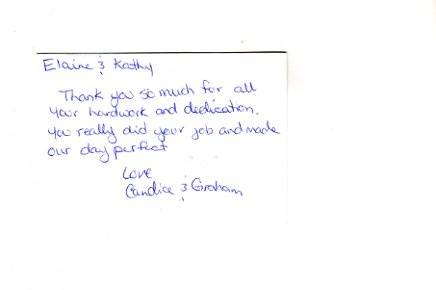 Elaine & Kathy
Thank you so much for all
your hardwork and dedication.
You really did your job and made
our day perfect
Love
Candice & Graham